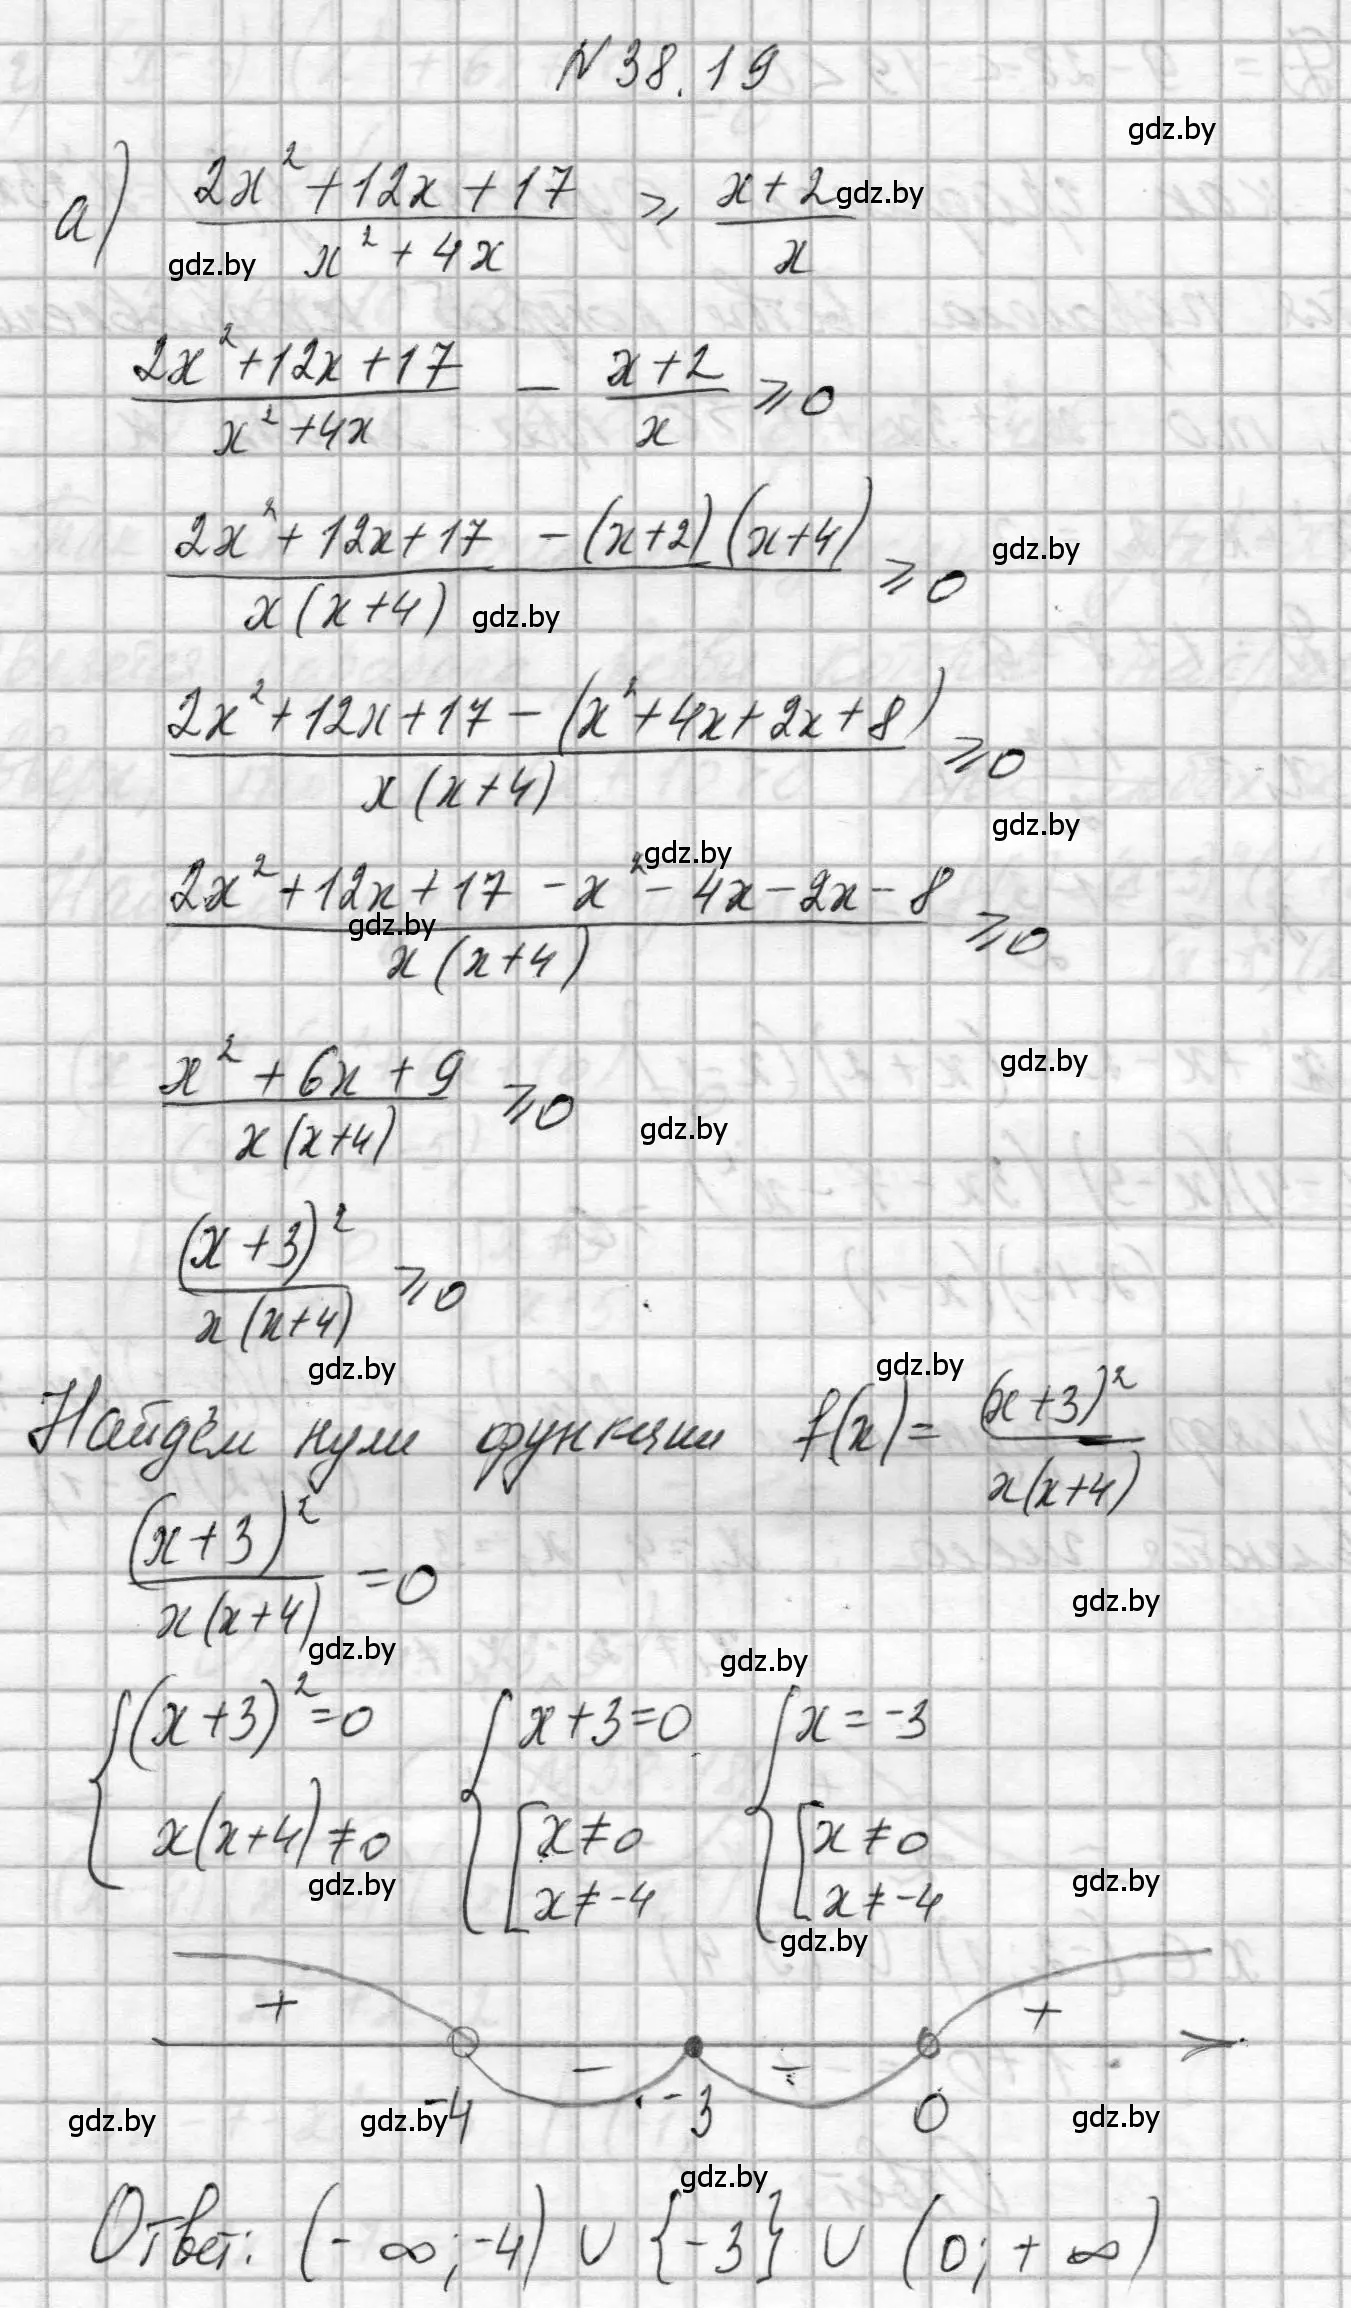 N 38.19
gdz.by
а) (2x² + 12x + 17)/(x² + 4x) ⩾ (x + 2)/x
gdz.by
gdz.by
(2x² + 12x + 17)/(x² + 4x) − (x + 2)/x ⩾ 0
(2x² + 12x + 17 − (x + 2)(x + 4))/(x(x + 4)) ⩾ 0
gdz.by
gdz.by
(2x² + 12x + 17 − (x² + 4x + 2x + 8))/(x(x + 4)) ⩾ 0
gdz.by
gdz.by
(2x² + 12x + 17 − x² − 4x − 2x − 8)/(x(x + 4)) ⩾ 0
gdz.by
(x² + 6x + 9)/(x(x + 4)) ⩾ 0
gdz.by
gdz.by
(x + 3)²/(x(x + 4)) ⩾ 0
gdz.by
gdz.by
Найдём нули функции f(x) = (x + 3)²/(x(x + 4))
(x + 3)²/(x(x + 4)) = 0
gdz.by
gdz.by
gdz.by
{ (x + 3)² = 0 { x + 3 = 0 { x = −3
x(x + 4) ≠ 0 [ x ≠ 0 [ x ≠ 0
x ≠ −4 x ≠ −4
gdz.by
gdz.by
gdz.by
+ − − +
−4 −3 0
gdz.by
gdz.by
gdz.by
gdz.by
Ответ: (−∞; −4) ∪ {−3} ∪ (0; +∞)